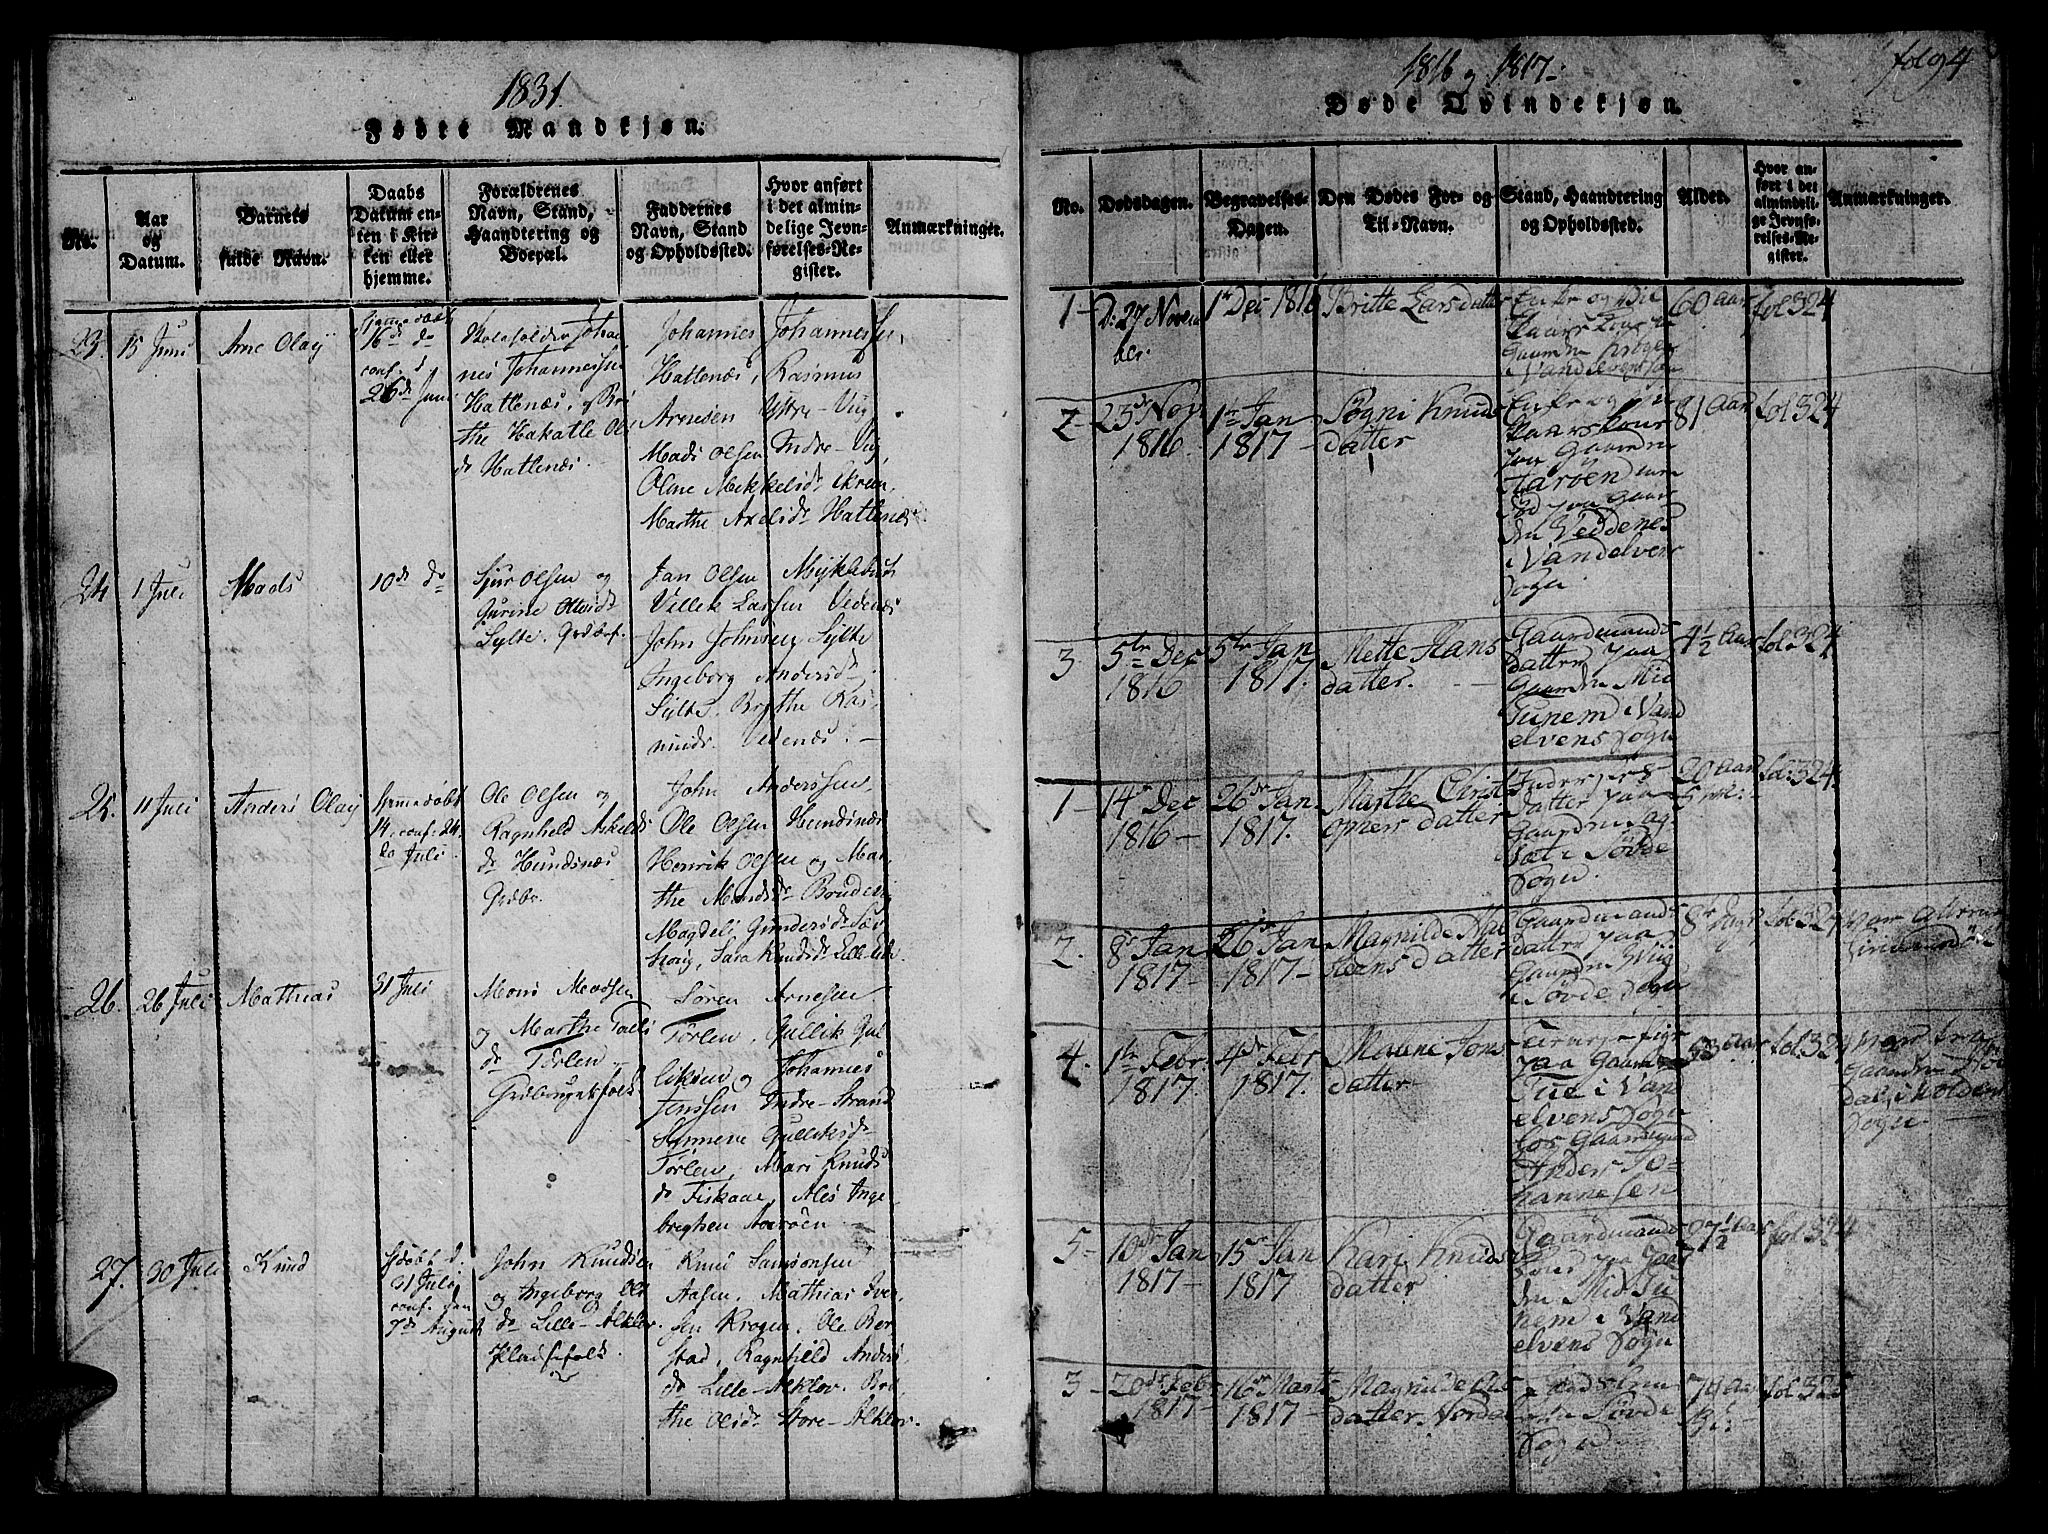 1831.
Fødte Mandkjøn.
No.
Aar
og
Datum.
Barnets
fulde Navn.
Daabs
Datum en-
ten i Kir-
ken eller
hjemme.
Forældrenes
Navn, Stand,
Haandtering og
Boepæl.
Faddernes
Navn, Stand
og Opholdssted.
Hvor anført
i det almin-
delige Jevn-
førelses-Re-
gister.
Anmærkninger.
23.
15 Juni
Arne Olaÿ
Hjemmedøbt
16de do
conf. d
26de Juni
Johan
nes Johannessen
Hatlenæs, og Bri
the Hakatle Ols
dr Hatlenæs.
Johannes Johannessen,
Hatlenæs, Rasmus
Arnesen Ystre-Viig
Mads Olsen Indre-Viig,
Oline Mekkelsdr Ekrem,
Marthe Axelsdr Hatlenæs
24.
1 Juli
Mads
10de do
Sjur Olsen og
Gurine Olsdr
Sylte. Grdbrf.
Jan Olsen Myklebust
Villik Larsen Vedenæs
John Johnsen Sylte
Ingeborg Andersd.
Sylte, Brythe Ras,
musdr. Vedenæs.
25.
11 Juli
Anders Olaÿ
hjemmedøbt
14, conf. 24
do Juli.
Ole Olsen og
Ragnheld Askelds
dr Hundsnæs
Grdbr.
John Anderssen,
Ole Olsen Hundsnæs
Henrik Olsen og Mar,
the Mondsdr Brudevig
Magdeli Gundersdr Sæv
horig, Sara Knudsdr Lille-Eide.
26.
26 Juli
Mathias
31 Juli
Mons Madsen
og Marthe
dr Törlen
Grdbrugerfolk
Sören Arnesen
Törlen, Gullik Gul
liksen og Johannes
Jenssen Indre-Strand
Synneve Gulliksdr
Törlen, Mari Knuds
dr Fiskaae, Ales Inge
breghsen Aaröen
27.
30 Juli
Knud
hjdøbt d.
31 Juli
conf. den
7de August
John Knudsen
og Ingeborg Ols
dr Lille-Alklov.
Pladsefolk.
Knud Samsonsen
Aasen, Mathias Iver,
sen Krogen, Ole Ber
stad, Ragnhild Anders
dr Lille-Alklov. Bri
the Olsdr Store-Alklov.
fol 94
1816 og 1817.
Døde Qvindekjøn.
No.
Dødsdagen.
Begravelses-
Dagen.
Den Dødes For- og
Til-Navn.
Stand, Haandtering
og Opholdssted.
Alder.
Hvor an-
ført i det
almindeli-
ge Jevnfø-
relses-Re-
gister.
Anmærkninger.
1-
D. 27 Novem
ber.
1te Dec 1816
Britte Larsdatter
Enke og
Gaarden Kroge
i Vandelvens sogn
60 aar
fol 324
2-
25de Nov.
1816.
1te Jan
1817-
Sÿgni Knuds
datter
Enke og
paa Gaarden
Aaröen som
död paa Gaar
den Veddenes
i Vandelvens
Sogn
81 Aar
fol 324
3
5te Dec
1816
5te Jan
1817.
Mette Hans
datter.
Gaardmands
datter paa
Gaarden Mid
Tunem i Vand
elvens Sogn
4½ Aar
fol. 324
1-
14de Dec
1816-
26de Jan
1817.
Marthe Christ
ophers datter
datter paa
Gaarden
i Søvde
Sogn.
20 aar
fol: 324
2.
8de Jan
1817-
26de Jan
1817-
Magnilde
datter
Gaardmands
datter paa
Gaarden Viig
i Søvde Sogn
8te Dage
fol 324
4.
1te Febr.
1817.
4de Febr
1817.
Maune Jons
datter
paa Gaarden
Tue i Van
elvens Sogn
hos Gaardmand
Anders Jo-
hannesen
53 aar
fol. 324
var fra
Gaarden
dal i Volden
Sogn
5-
10de Jan
1817-
15de Jan
1817.
Kari Knuds
datter
Gaardmands
Kone paa Gaar
den Mid Tu
nem i Vand
elvens Sogn
27½ aar
fol 324
3-
20de Febr
1817-
16de Marts
1817-
Magnilde
datter Nordal
Søvde
Sogn
74 Aar
fol 325